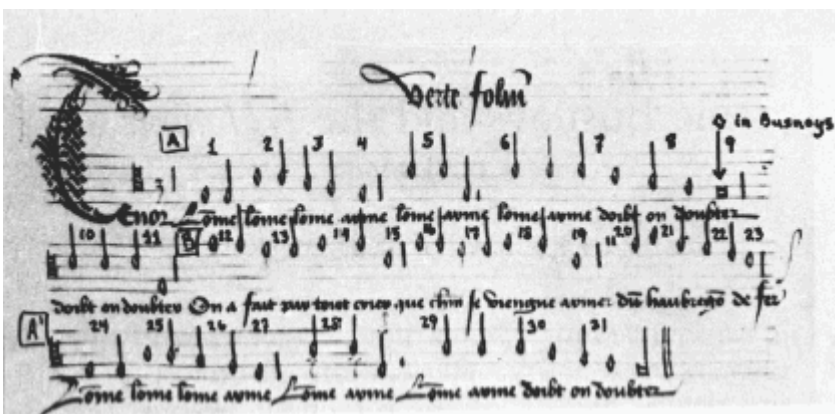 in Busnoys
A 1 2 3 4 5 6 7 8 9
Tenor Lome lome lome arme lome arme lome arme doibt on doubter
10 11 B 12 13 14 15 16 17 18 19 20 21 22 23
doibt on doubter On a fait par tout crier que chũn se viengne armer dũ haubregõ de fer
A' 24 25 26 27 28 29 30 31
Lome lome lome arme Lome arme Lome arme doibt on doubter